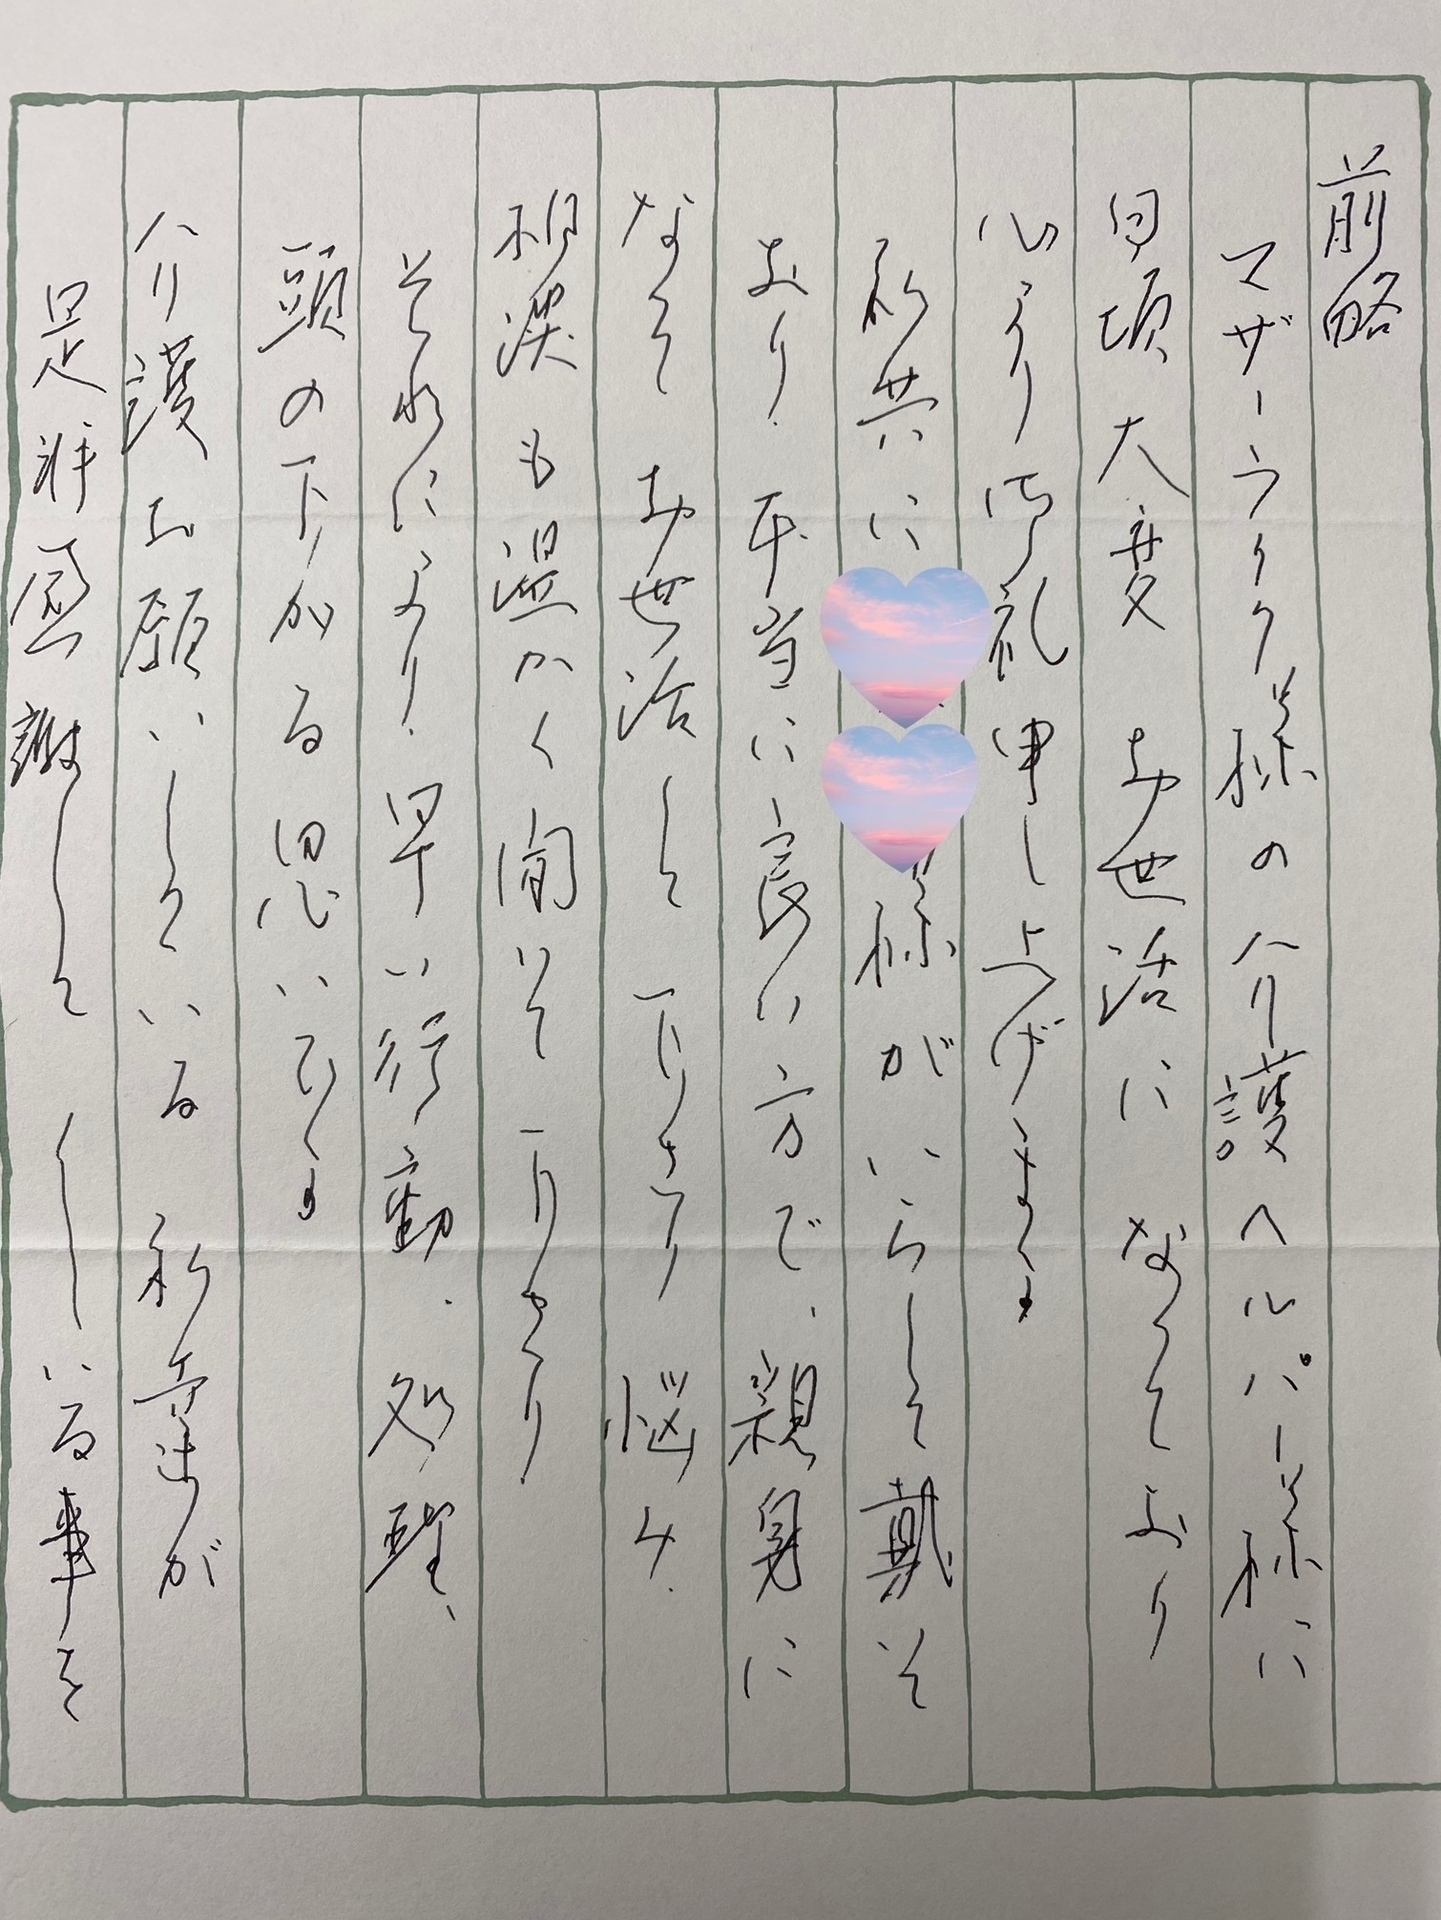 前略
マザーライク様の介護ヘルパー様に
日頃大変お世話になっており
心より御礼申し上げます。
私共に様がいらして戴いて
おり、本当に良い方で、親身に
なって お世話して下さり 悩み、
相談も温かく聞いて下さり
それにより、早い行動、処理、
頭の下がる思いです。
介護お願いしている 私達が
是非感謝して している事を